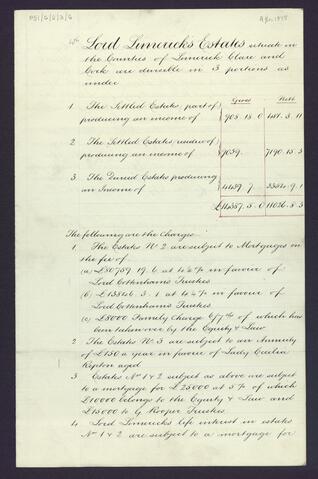 P51/6/2/3/6
Lord Limerick's Estates situate in
the Counties of Limerick Clare and
Cork are divisible in 3 portions as
under
Gross Nett
1 The Settled Estates part of
producing an income of 905.15.0 481.3.11
2 The Settled Estates residue of
producing an income of 7039. 7190.15.3
3 The Devised Estates producing
an Income of 3354.9.1
£ 14357.5.0 11026.8.3
The following are the Charges
1. The Estates No 2 are subject to Mortgages on
the fee of
(a) £80759.19.6 at 4¼% in favour of
Lord Cottenham's Trustees
(b) £13846.3.1 at 4¼% in favour of
Lord Cottenham's Trustees
(c) £8000 Family Charge of which has
been taken over by the Equity & Law
2 The Estates No 3 are subject to an Annuity
of £150 a year in favour of Lady Cecilia
Repton aged
3 Estates No 1 & 2 subject as above are subject
to a mortgage for £25000 at 5% of which
£10000 belongs to the Equity & Law and
£15000 to G Rooper Trustees.
4 Lord Limerick's life interest in estates
No 1 & 2 are subject to a mortgage for